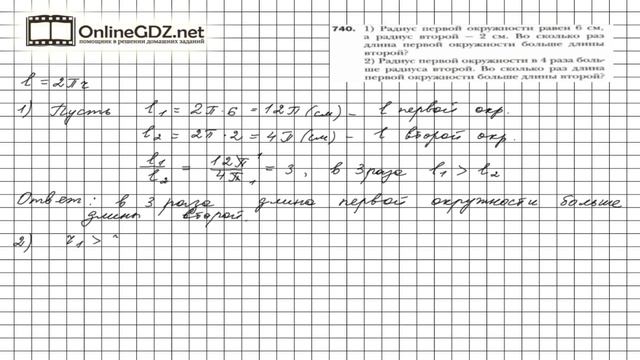 OnlineGDZ.net
помощник в решении домашних заданий
740. 1) Радиус первой окружности равен 6 см,
а радиус второй – 2 см. Во сколько раз
длина первой окружности больше длины
второй?
2) Радиус первой окружности в 4 раза боль-
ше радиуса второй. Во сколько раз длина
первой окружности больше длины второй?
l = 2πr
1) Пусть l₁ = 2π·6 = 12π (см) – l первой окр.
l₂ = 2π·2 = 4π (см) – l второй окр.
l₁/l₂ = 12π/4π = 3, в 3 раза l₁ > l₂
Ответ: в 3 раза длина первой окружности больше
длины второй.
2) r₁ >